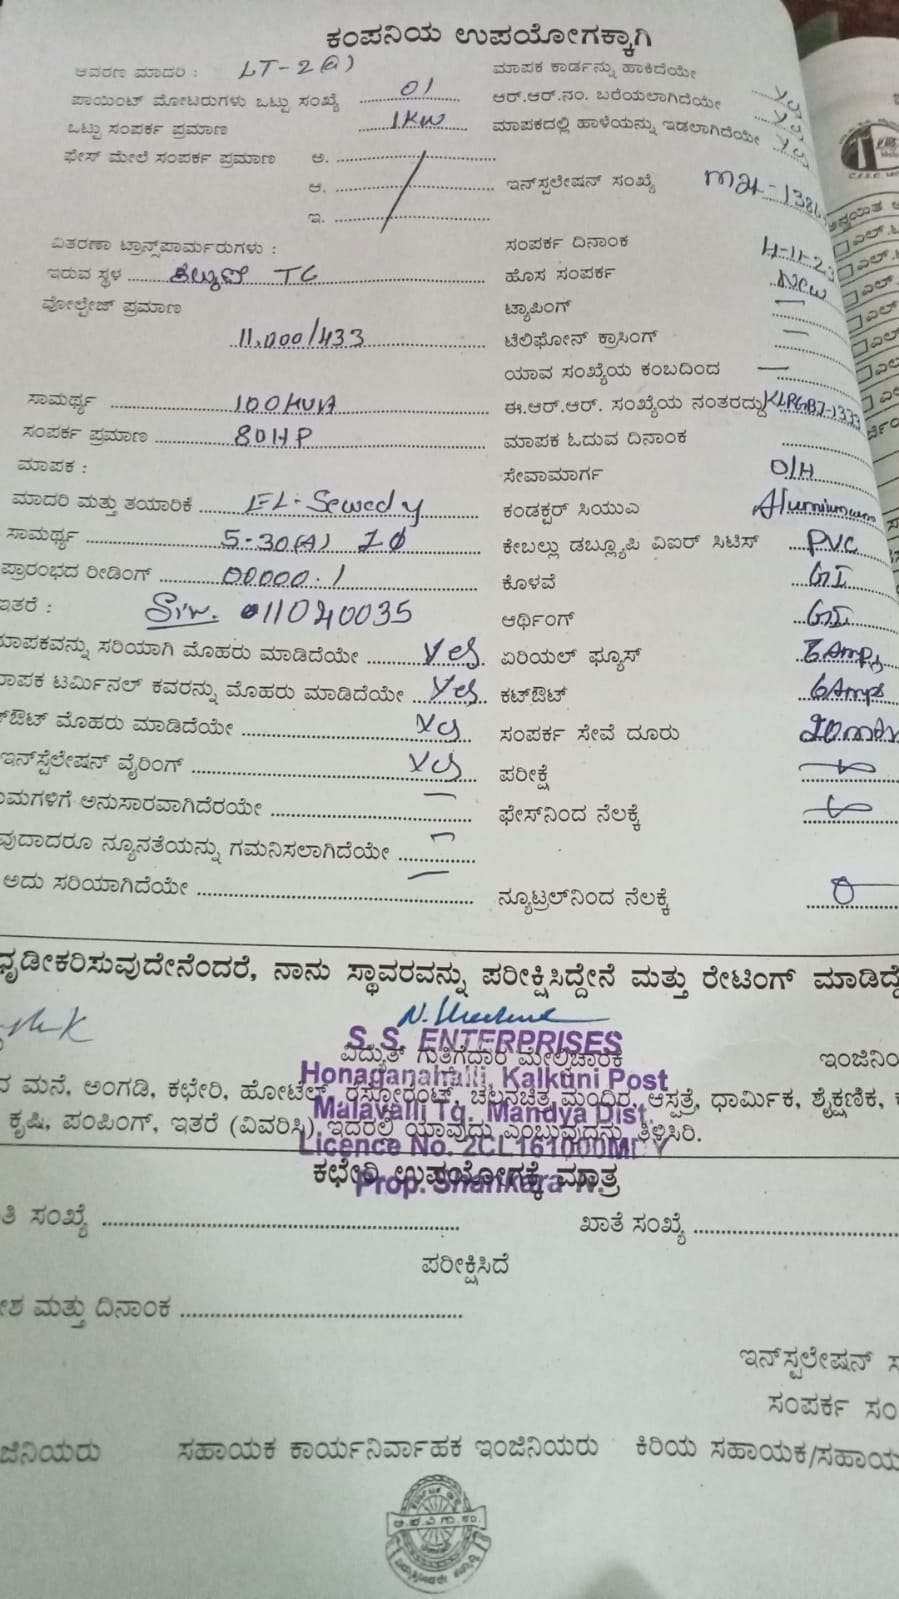 ಕಂಪನಿಯ ಉಪಯೋಗಕ್ಕಾಗಿ
ಆವರಣ ಮಾದರಿ : LT-2(a) ಮಾಪಕ ಕಾರ್ಡನ್ನು ಹಾಕಿದೆಯೇ Yes
ಪಾಯಿಂಟ್ ಮೋಟರುಗಳು ಒಟ್ಟು ಸಂಖ್ಯೆ 01 ಆರ್.ಆರ್.ನಂ. ಬರೆಯಲಾಗಿದೆಯೇ Yes
ಒಟ್ಟು ಸಂಪರ್ಕ ಪ್ರಮಾಣ 1KW ಮಾಪಕದಲ್ಲಿ ಹಾಳೆಯನ್ನು ಇಡಲಾಗಿದೆಯೇ Yes
ಫೇಸ್ ಮೇಲೆ ಸಂಪರ್ಕ ಪ್ರಮಾಣ ಅ.
ಆ. ಇನ್‌ಸ್ಪಲೇಷನ್ ಸಂಖ್ಯೆ
ಇ.
ವಿತರಣಾ ಟ್ರಾನ್ಸ್‌ಪಾರ್ಮರುಗಳು : ಸಂಪರ್ಕ ದಿನಾಂಕ 4-11-23
ಇರುವ ಸ್ಥಳ TC ಹೊಸ ಸಂಪರ್ಕ New
ವೋಲ್ಟೇಜ್ ಪ್ರಮಾಣ ಟ್ಯಾಪಿಂಗ್ —
11,000/433 ಟೆಲಿಫೋನ್ ಕ್ರಾಸಿಂಗ್ —
ಯಾವ ಸಂಖ್ಯೆಯ ಕಂಬದಿಂದ —
ಸಾಮರ್ಥ್ಯ 100KVA ಈ.ಆರ್.ಆರ್. ಸಂಖ್ಯೆಯ ನಂತರದ್ದು
ಸಂಪರ್ಕ ಪ್ರಮಾಣ 80HP ಮಾಪಕ ಓದುವ ದಿನಾಂಕ
ಮಾಪಕ : ಸೇವಾಮಾರ್ಗ O/H
ಮಾದರಿ ಮತ್ತು ತಯಾರಿಕೆ EL-Sewedy ಕಂಡಕ್ಟರ್ ಸಿಯುಎ Aluminium
ಸಾಮರ್ಥ್ಯ 5-30(A) 1Ø ಕೇಬಲ್ಲು ಡಬ್ಲ್ಯೂಪಿ ವಿಐಆರ್ ಸಿಟಿಸ್ PVC
ಪ್ರಾರಂಭದ ರೀಡಿಂಗ್ 00000.1 ಕೊಳವೆ GI
ಇತರೆ : 011040035 ಆರ್ಥಿಂಗ್ GI
ಮಾಪಕವನ್ನು ಸರಿಯಾಗಿ ಮೊಹರು ಮಾಡಿದೆಯೇ Yes ಏರಿಯಲ್ ಫ್ಯೂಸ್ 6Amps
ಮಾಪಕ ಟರ್ಮಿನಲ್ ಕವರನ್ನು ಮೊಹರು ಮಾಡಿದೆಯೇ Yes ಕಟ್‌ಔಟ್ 6Amps
ಟ್‌ಔಟ್ ಮೊಹರು ಮಾಡಿದೆಯೇ Yes ಸಂಪರ್ಕ ಸೇವೆ ದೂರು
ಇನ್‌ಸ್ಪೆಲೇಷನ್ ವೈರಿಂಗ್ Yes ಪರೀಕ್ಷೆ
ಯಮಗಳಿಗೆ ಅನುಸಾರವಾಗಿದೆರಯೇ — ಫೇಸ್‌ನಿಂದ ನೆಲಕ್ಕೆ
ವುದಾದರೂ ನ್ಯೂನತೆಯನ್ನು ಗಮನಿಸಲಾಗಿದೆಯೇ —
ಅದು ಸರಿಯಾಗಿದೆಯೇ — ನ್ಯೂಟ್ರಲ್‌ನಿಂದ ನೆಲಕ್ಕೆ
ಧೃಡೀಕರಿಸುವುದೇನೆಂದರೆ, ನಾನು ಸ್ಥಾವರವನ್ನು ಪರೀಕ್ಷಿಸಿದ್ದೇನೆ ಮತ್ತು ರೇಟಿಂಗ್ ಮಾಡಿದ್ದೆ
S.S. ENTERPRISES
ವಿದ್ಯುತ್ ಗುತ್ತಿಗೆದಾರ ಮೇಲ್ವಿಚಾರಕ ಇಂಜಿನಿ
Honaganahalli, Kalkuni Post
ದ ಮನೆ, ಅಂಗಡಿ, ಕಛೇರಿ, ಹೋಟೆಲ್, ರೆಸ್ಟೋರಂಟ್, ಚಲನಚಿತ್ರ ಮಂದಿರ, ಆಸ್ಪತ್ರೆ, ಧಾರ್ಮಿಕ, ಶೈಕ್ಷಣಿಕ,
Malavalli Tq. Mandya Dist.
ಕೃಷಿ, ಪಂಪಿಂಗ್, ಇತರೆ (ವಿವರಿಸಿ) ಇದರಲ್ಲಿ ಯಾವುದು ಎಂಬುವುದನ್ನು ತಿಳಿಸಿರಿ.
Licence No. 2CL161000MDY
ಕಛೇರಿ ಉಪಯೋಗಕ್ಕೆ ಮಾತ್ರ
Prop. Shankara N.
ತಿ ಸಂಖ್ಯೆ ಖಾತೆ ಸಂಖ್ಯೆ
ಪರೀಕ್ಷಿಸಿದೆ
ೇಶ ಮತ್ತು ದಿನಾಂಕ
ಇನ್‌ಸ್ಪಲೇಷನ್ ಸ
ಸಂಪರ್ಕ ಸಂ
ಜಿನಿಯರು ಸಹಾಯಕ ಕಾರ್ಯನಿರ್ವಾಹಕ ಇಂಜಿನಿಯರು ಕಿರಿಯ ಸಹಾಯಕ/ಸಹಾಯ